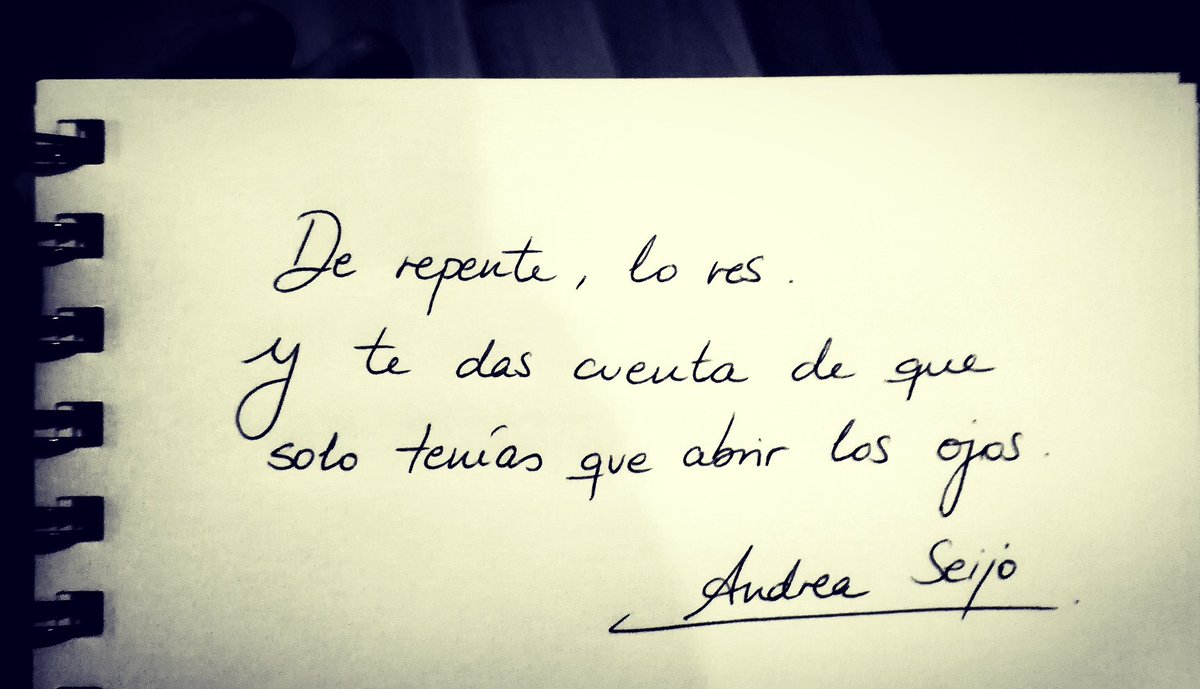 De repente, lo ves.
y te das cuenta de que
solo tenías que abrir los ojos.
Andrea Seijo